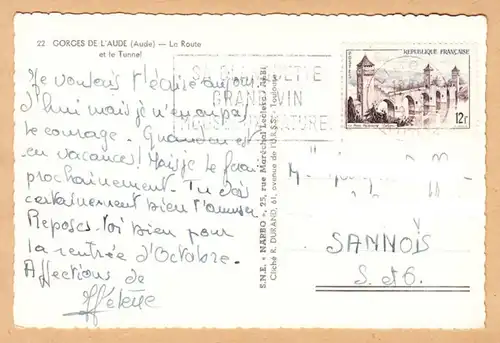 22 GORGES DE L'AUDE (Aude) — La Route
et le Tunnel
Je voulais t'écrire aujour
d'hui mais je n'en ai pas
le courage. Quand on est
en vacances! Mais je le ferai
prochainement. Tu dois
certainement bien t'amuser
Reposes-toi bien pour
la rentrée d'Octobre.
Affections de
Hélène
S.N.E. « NARBO », 25, rue Maréchal
Cliché R. DURAND, 61, avenue de l'U.R.S.S. - Toulouse
GRAND VIN
NATURE
REPUBLIQUE FRANÇAISE
12F
SANNOIS
S. et O.